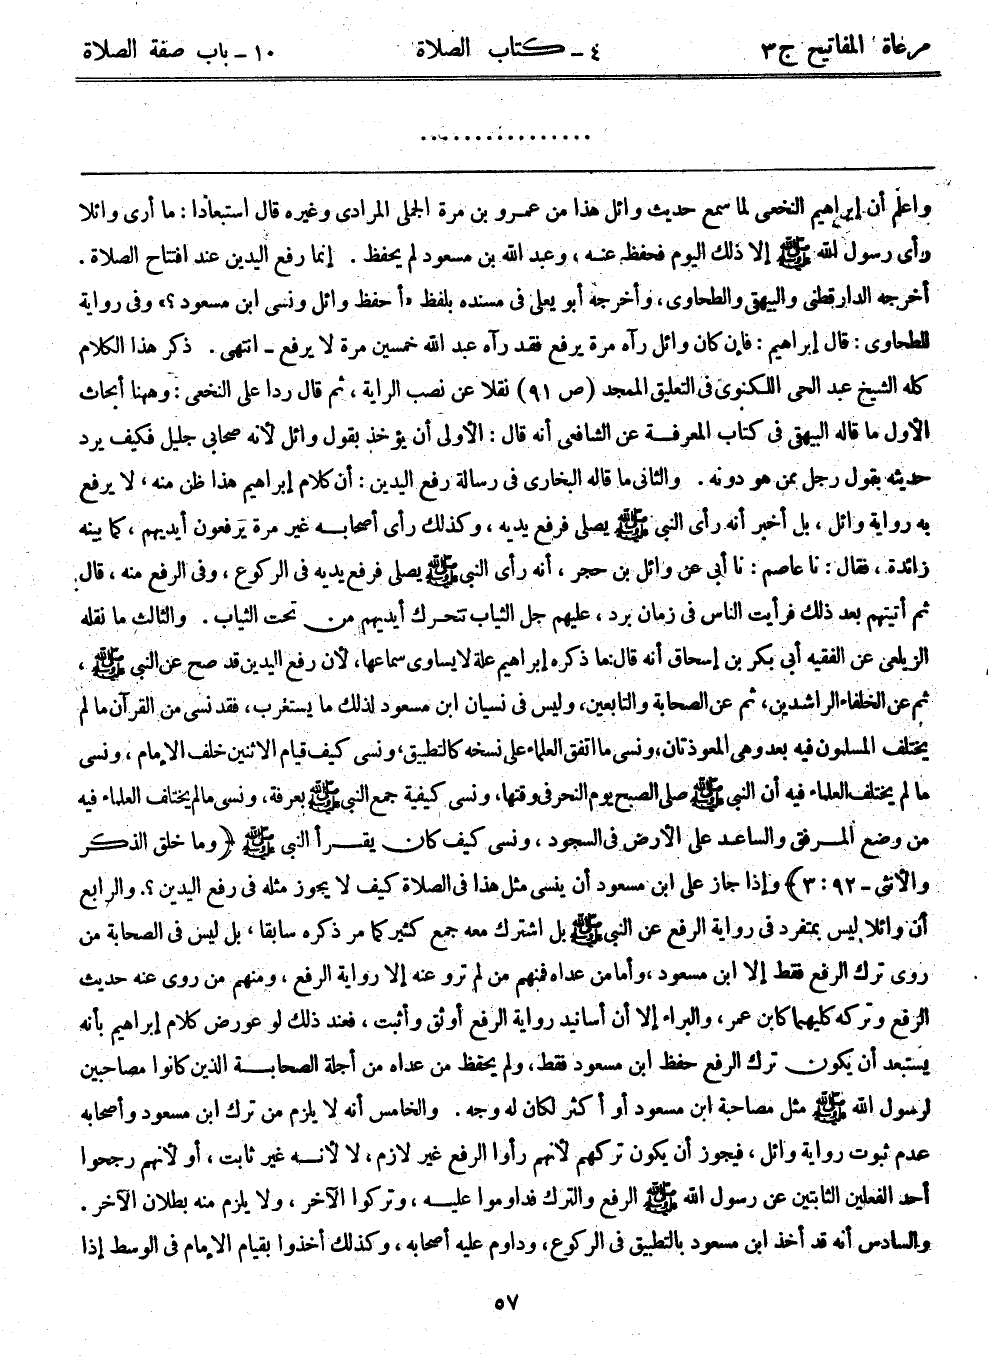 مرعاة المفاتيح ج٣
٤ - كتاب الصلاة
١٠ - باب صفة الصلاة
................
واعلم أن إبراهيم النخعى لما سمع حديث وائل هذا من عمرو بن مرة الجملى المرادى وغيره قال استبعادا : ما أرى وائلا
رأى رسول الله ﷺ إلا ذلك اليوم فحفظ عنه ، وعبد الله بن مسعود لم يحفظ . إنما رفع اليدين عند افتتاح الصلاة .
أخرجه الدارقطنى والبيهقى والطحاوى ، وأخرجه أبو يعلى فى مسنده بلفظ «أ حفظ وائل ونسى ابن مسعود ؟» وفى رواية
للطحاوى : قال إبراهيم : فإن كان وائل رآه مرة يرفع فقد رآه عبد الله خمسين مرة لا يرفع - انتهى . ذكر هذا الكلام
كله الشيخ عبد الحى اللكنوى فى التعليق الممجد (ص ٩١) نقلا عن نصب الراية ، ثم قال ردا على النخعى : وههنا أبحاث
الأول ما قاله البيهقى فى كتاب المعرفة عن الشافعى أنه قال : الأولى أن يؤخذ بقول وائل لأنه صحابي جليل فكيف يرد
حديثه بقول رجل ممن هو دونه . والثانى ما قاله البخارى فى رسالة رفع اليدين : أن كلام إبراهيم هذا ظن منه ، لا يرفع
به رواية وائل ، بل أخبر أنه رأى النبي ﷺ يصلى فرفع يديه ، وكذلك رأى أصحابه غير مرة يرفعون أيديهم ، كما بينه
زائدة ، فقال : نا عاصم : نا أبي عن وائل بن حجر ، أنه رأى النبي ﷺ يصلى فرفع يديه فى الركوع ، وفى الرفع منه ، قال
ثم أتيتهم بعد ذلك فرأيت الناس فى زمان برد ، عليهم جل الثياب تتحرك أيديهم من تحت الثياب . والثالث ما نقله
الزيلعى عن الفقيه أبي بكر بن إسحاق أنه قال : ما ذكره إبراهيم علة لا يساوى سماعها ، لأن رفع اليدين قد صح عن النبي ﷺ ،
ثم عن الخلفاء الراشدين ، ثم عن الصحابة والتابعين ، وليس فى نسيان ابن مسعود لذلك ما يستغرب ، فقد نسى من القرآن ما لم
يختلف المسلمون فيه بعد وهى المعوذتان ، ونسى ما اتفق العلماء على نسخه كالتطبيق ، ونسى كيف قيام الاثنين خلف الإمام ، ونسى
ما لم يختلف العلماء فيه أن النبي ﷺ صلى الصبح يوم النحر فى وقتها ، ونسى كيفية جمع النبي ﷺ بعرفة ، ونسى ما لم يختلف العلماء فيه
من وضع المرفق والساعد على الأرض فى السجود ، ونسى كيف كان يقرأ النبي ﷺ ﴿وما خلق الذكر
والأنثى - ٩٢ : ٣﴾ وإذا جاز على ابن مسعود أن ينسى مثل هذا فى الصلاة كيف لا يجوز مثله فى رفع اليدين ؟. والرابع
أن وائلا ليس بمتفرد فى رواية الرفع عن النبي ﷺ بل اشترك معه جمع كثير كما مر ذكره سابقا ، بل ليس فى الصحابة من
روى ترك الرفع فقط إلا ابن مسعود ، وأما من عداه فمنهم من لم ترو عنه إلا رواية الرفع ، ومنهم من روى عنه حديث
الرفع وتركه كليهما كابن عمر ، والبراء إلا أن أسانيد رواية الرفع أوثق وأثبت ، فعند ذلك لو عورض كلام إبراهيم بأنه
يستبعد أن يكون ترك الرفع حفظ ابن مسعود فقط ، ولم يحفظ من عداه من أجلة الصحابة الذين كانوا مصاحبين
لرسول الله ﷺ مثل مصاحبة ابن مسعود أو أكثر لكان له وجه . والخامس أنه لا يلزم من ترك ابن مسعود وأصحابه
عدم ثبوت رواية وائل ، فيجوز أن يكون تركهم لأنهم رأوا الرفع غير لازم ، لا لأنه غير ثابت ، أو لأنهم رجحوا
أحد الفعلين الثابتين عن رسول الله ﷺ الرفع والترك فداوموا عليه ، وتركوا الآخر ، ولا يلزم منه بطلان الآخر .
والسادس أنه قد أخذ ابن مسعود بالتطبيق فى الركوع ، وداوم عليه أصحابه ، وكذلك أخذوا بقيام الإمام فى الوسط إذا
٥٧